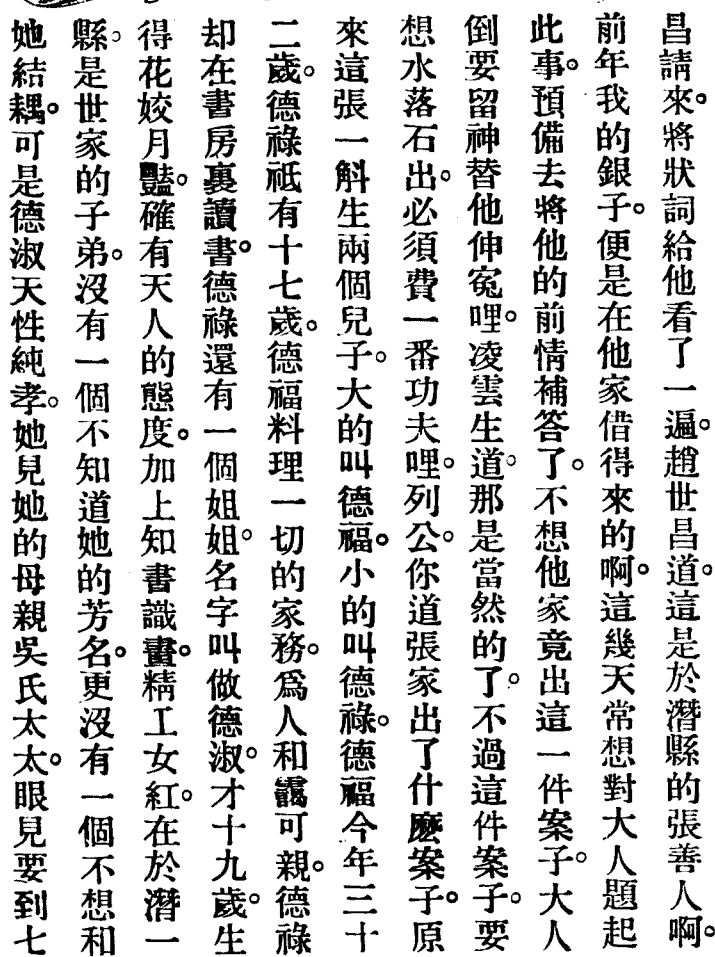 昌請來。將狀詞給他看了一遍。趙世昌道。這是於潛縣的張善人啊。
前年我的銀子。便是在他家借得來的啊。這幾天常想對大人題起
此事。預備去將他的前情補答了。不想他家竟出這一件案子。大人
倒要留神替他伸寃哩。凌雲生道。那是當然的了。不過這件案子。要
想水落石出。必須費一番功夫哩。列公。你道張家出了什麽案子。原
來這張一斛生兩個兒子。大的叫德福。小的叫德祿。德福今年三十
二歲。德祿祗有十七歲。德福料理一切的家務。爲人和靄可親。德祿
却在書房裏讀書。德祿還有一個姐姐。名字叫做德淑。才十九歲。生
得花姣月豔。確有天人的態度。加上知書識畫。精工女紅。在於潛一
縣。是世家的子弟。沒有一個不知道她的芳名。更沒有一個不想和
她結耦。可是德淑天性純孝。她見她的母親吳氏太太。眼見要到七